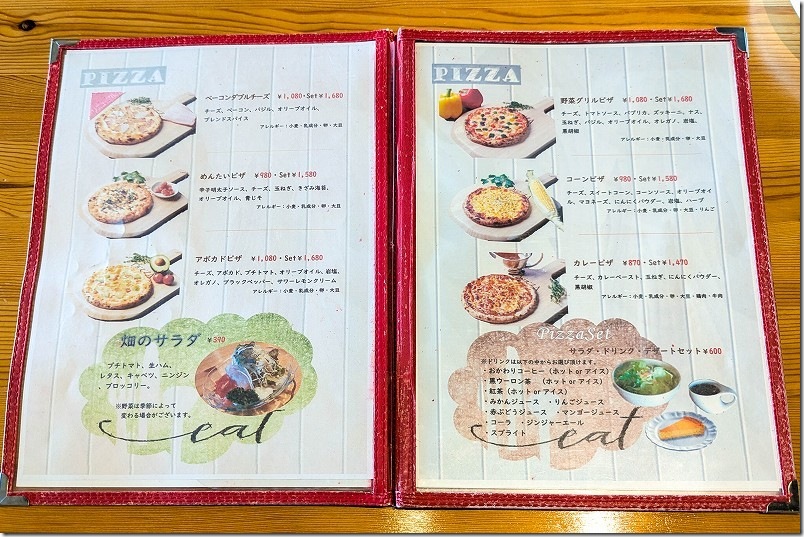 PIZZA
ベーコンダブルチーズ ¥1,080・Set¥1,680
チーズ、ベーコン、バジル、オリーブオイル、
ブレンドスパイス
アレルギー：小麦・乳成分・卵・大豆
めんたいピザ ¥980・Set¥1,580
辛子明太子ソース、チーズ、玉ねぎ、きざみ海苔、
オリーブオイル、青じそ
アレルギー：小麦・乳成分・卵・大豆
アボカドピザ ¥1,080・Set¥1,680
チーズ、アボカド、プチトマト、オリーブオイル、岩塩、
オレガノ、ブラックペッパー、サワーレモンクリーム
アレルギー：小麦・乳成分・卵・大豆
畑のサラダ ¥390
プチトマト、生ハム、
レタス、キャベツ、ニンジン
、ブロッコリー。
※野菜は季節によって
変わる場合がございます。
eat
PIZZA
野菜グリルピザ ¥1,080・Set¥1,680
チーズ、トマトソース、パプリカ、ズッキーニ、ナス、
玉ねぎ、バジル、オリーブオイル、オレガノ、岩塩、
黒胡椒
アレルギー：小麦・乳成分・卵・大豆
コーンピザ ¥980・Set¥1,580
チーズ、スイートコーン、コーンソース、オリーブオイ
ル、マヨネーズ、にんにくパウダー、岩塩、ハーブ
アレルギー：小麦・乳成分・卵・大豆・りんご
カレーピザ ¥870・Set¥1,470
チーズ、カレーペースト、玉ねぎ、にんにくパウダー、
黒胡椒
アレルギー：小麦・乳成分・卵・大豆・鶏肉・牛肉
PizzaSet
サラダ・ドリンク・デザートセット¥600
※ドリンクは以下の中からお選び頂けます。
・おかわりコーヒー（ホット or アイス）
・黒ウーロン茶 （ホット or アイス）
・紅茶（ホット or アイス）
・みかんジュース ・りんごジュース
・赤ぶどうジュース ・マンゴージュース
・コーラ ・ジンジャーエール
・スプライト
eat